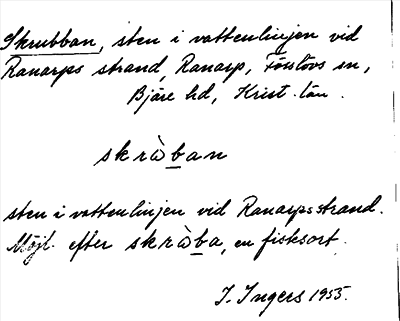 Skrubban, sten i vattenlinjen vid
Ranarps strand, Ranarp, Förslövs sn,
Bjäre hd, Krist. län.
skràban
sten i vattenlinjen vid Ranarpsstrand.
Möjl. efter skràba, en fisksort.
I. Ingers 1955.